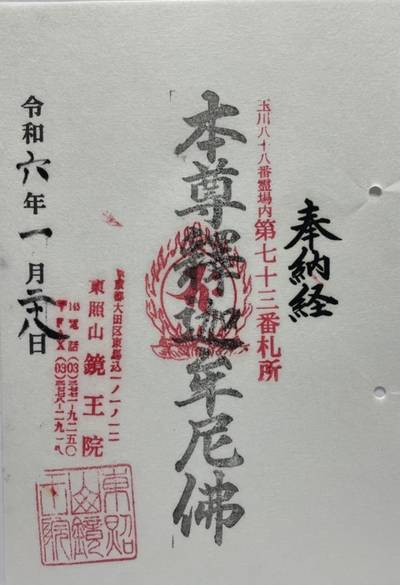 奉納経
玉川八十八番霊場内第七十三番札所
本尊釋迦牟尼佛
東京都大田区東馬込一ノ一ノ一二
東照山 鏡王院
令和六年一月二十八日
東照
山鏡
王院